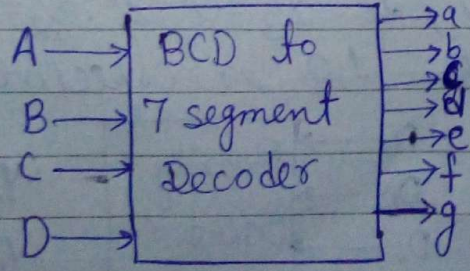 A
B
C
D
BCD to
7 segment
Decoder
a
b
c
d
e
f
g